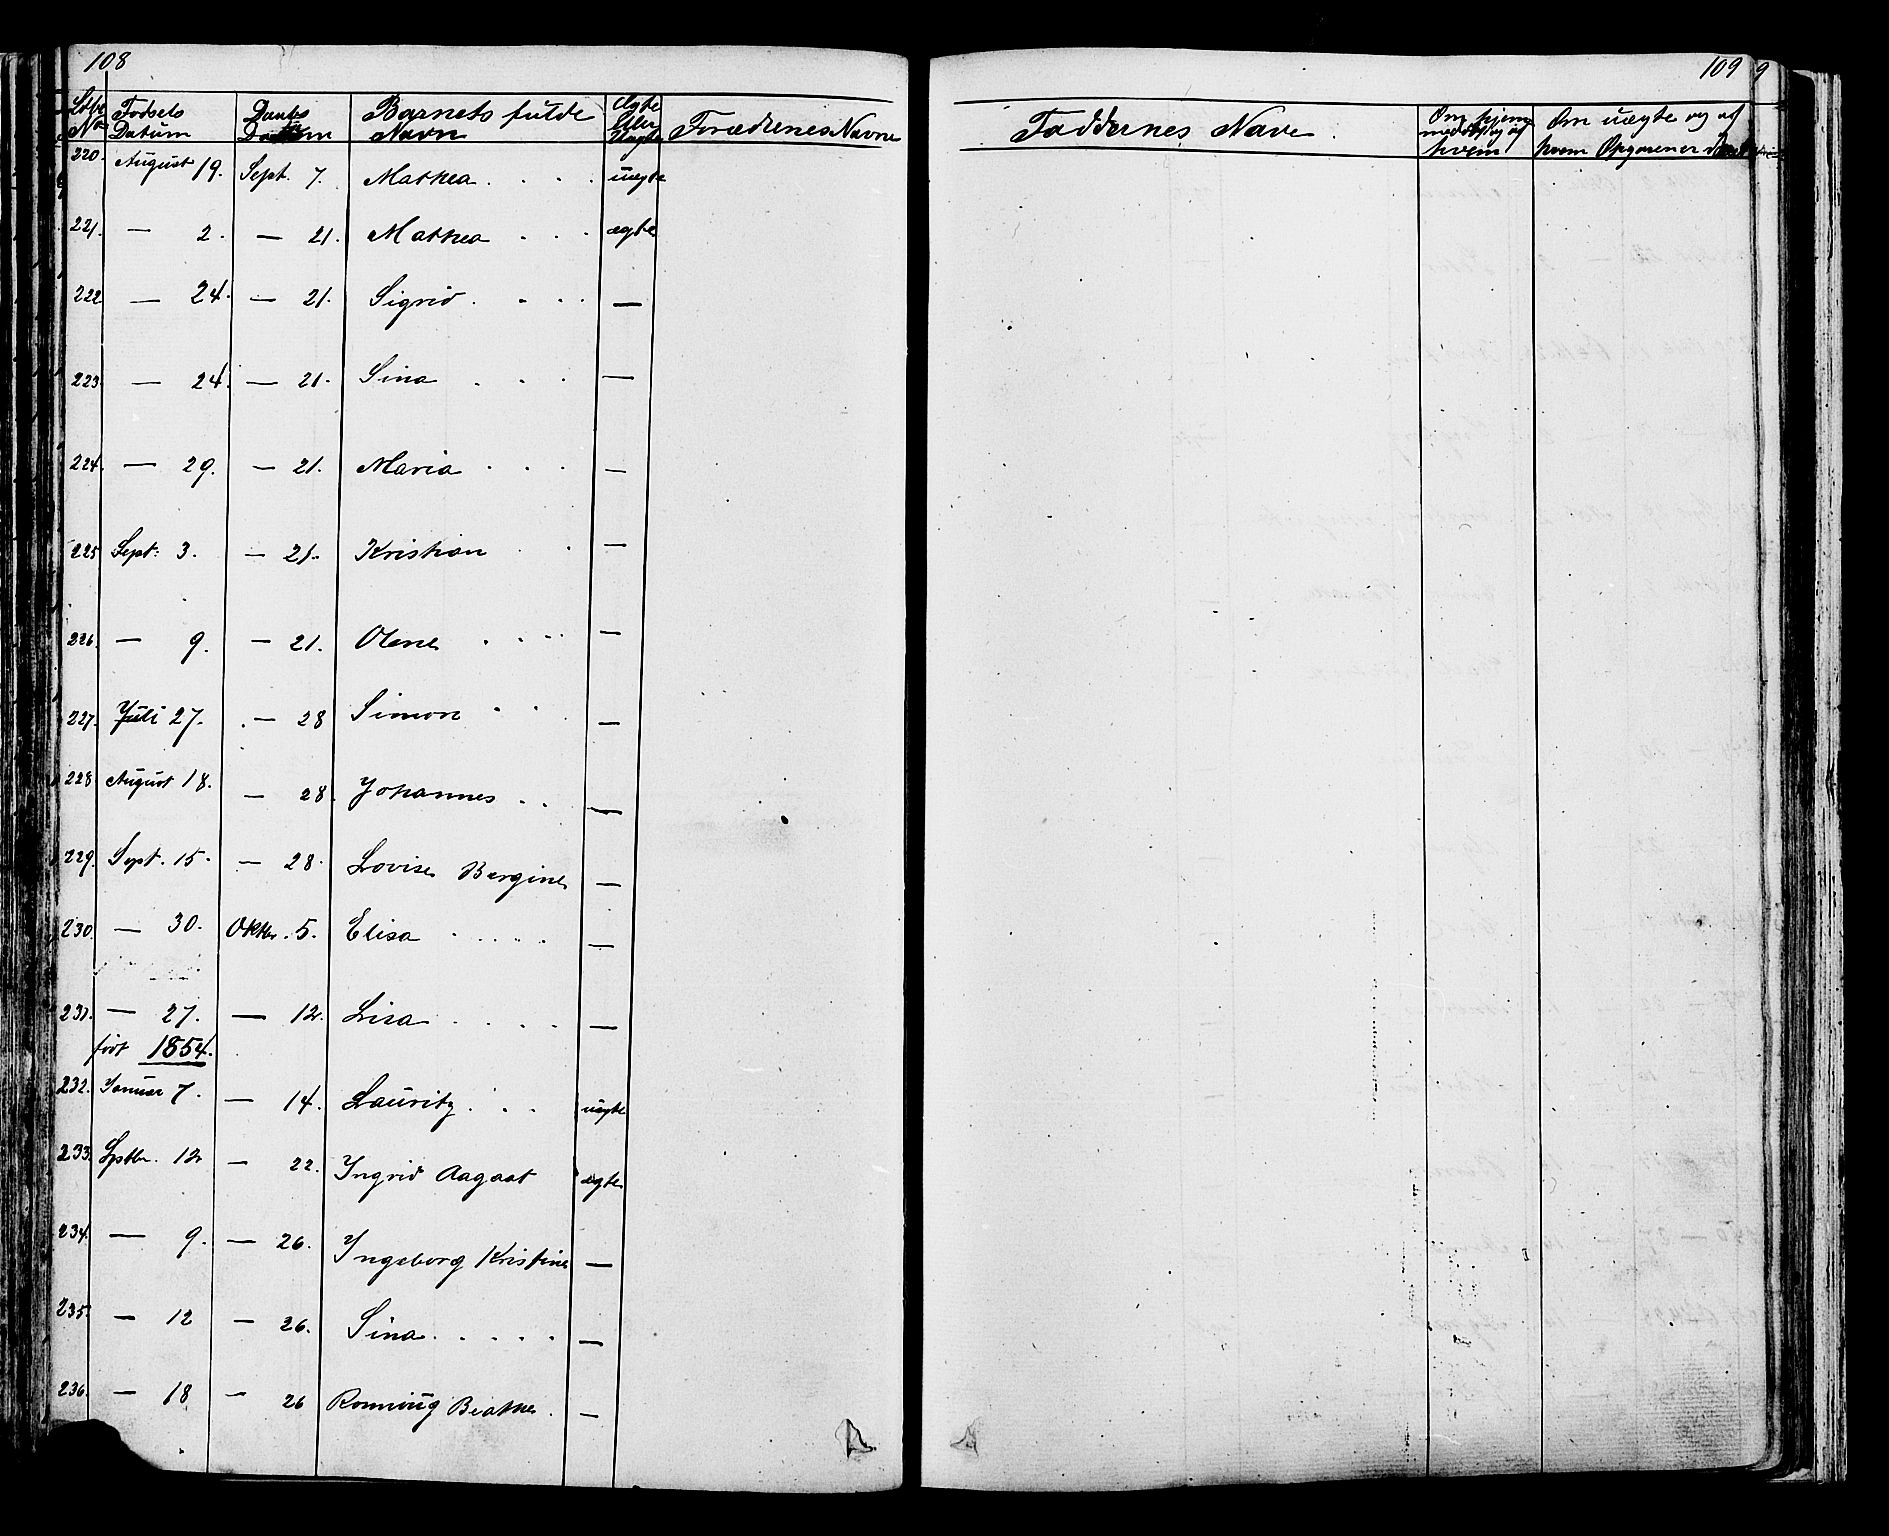 108
Fødsels Datum
Daabs Datum
Barnets fulde Navn
Ægte Eller Uægte
Forældrenes Navne
220. August 19. Sept. 7. Mathea uægte
221. — 2. — 21. Mathea ægte
222 — 24. — 21. Sigrid —
223. — 24. — 21. Sina —
224. — 29. — 21. Maria —
225 Sept: 3. — 21. Kristian —
226. — 9. — 21. Olene —
227. Juli 27. — 28 Simon —
228 August 18. — 28. Johannes —
229. Sept. 15. — 28. Lovise Bergine —
230. — 30. Oktbr. 5. Elisa —
231. — 27. — 12. Lisa —
født 1854.
232. Januar 7. — 14. Lauritz uægte
233. Sptbr. 12 — 22. Ingrid Aagaat ægte
234. — 9. — 26. Ingeborg Kristine —
235. — 12 — 26. Sina —
236. — 18 — 26 Ronnoug Beathe —
109 9
Faddernes Navne
Om hjemmedøbt og af hvem
Om uægte og af hvem